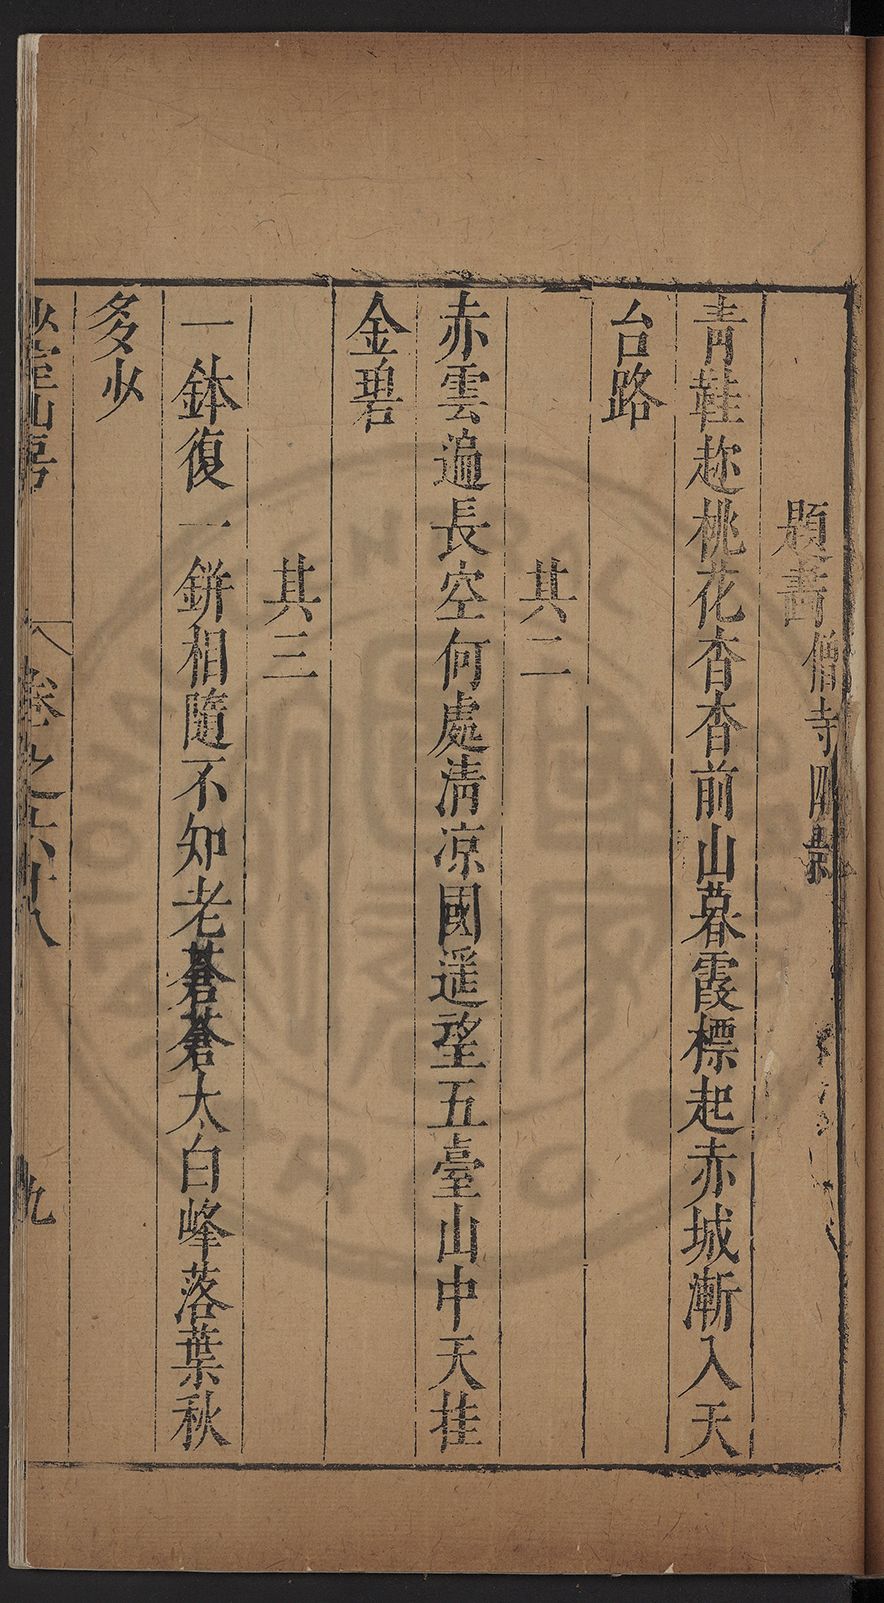 題畫僧寺四景
青鞋趂桃花杳杳前山暮霞標起赤城漸入天
台路
其二
赤雲遍長空何處清凉國遥望五臺山中天挂
金碧
其三
一鉢復一缾相隨不知老蒼蒼太白峰落葉秋
多少
卷之六十八
九